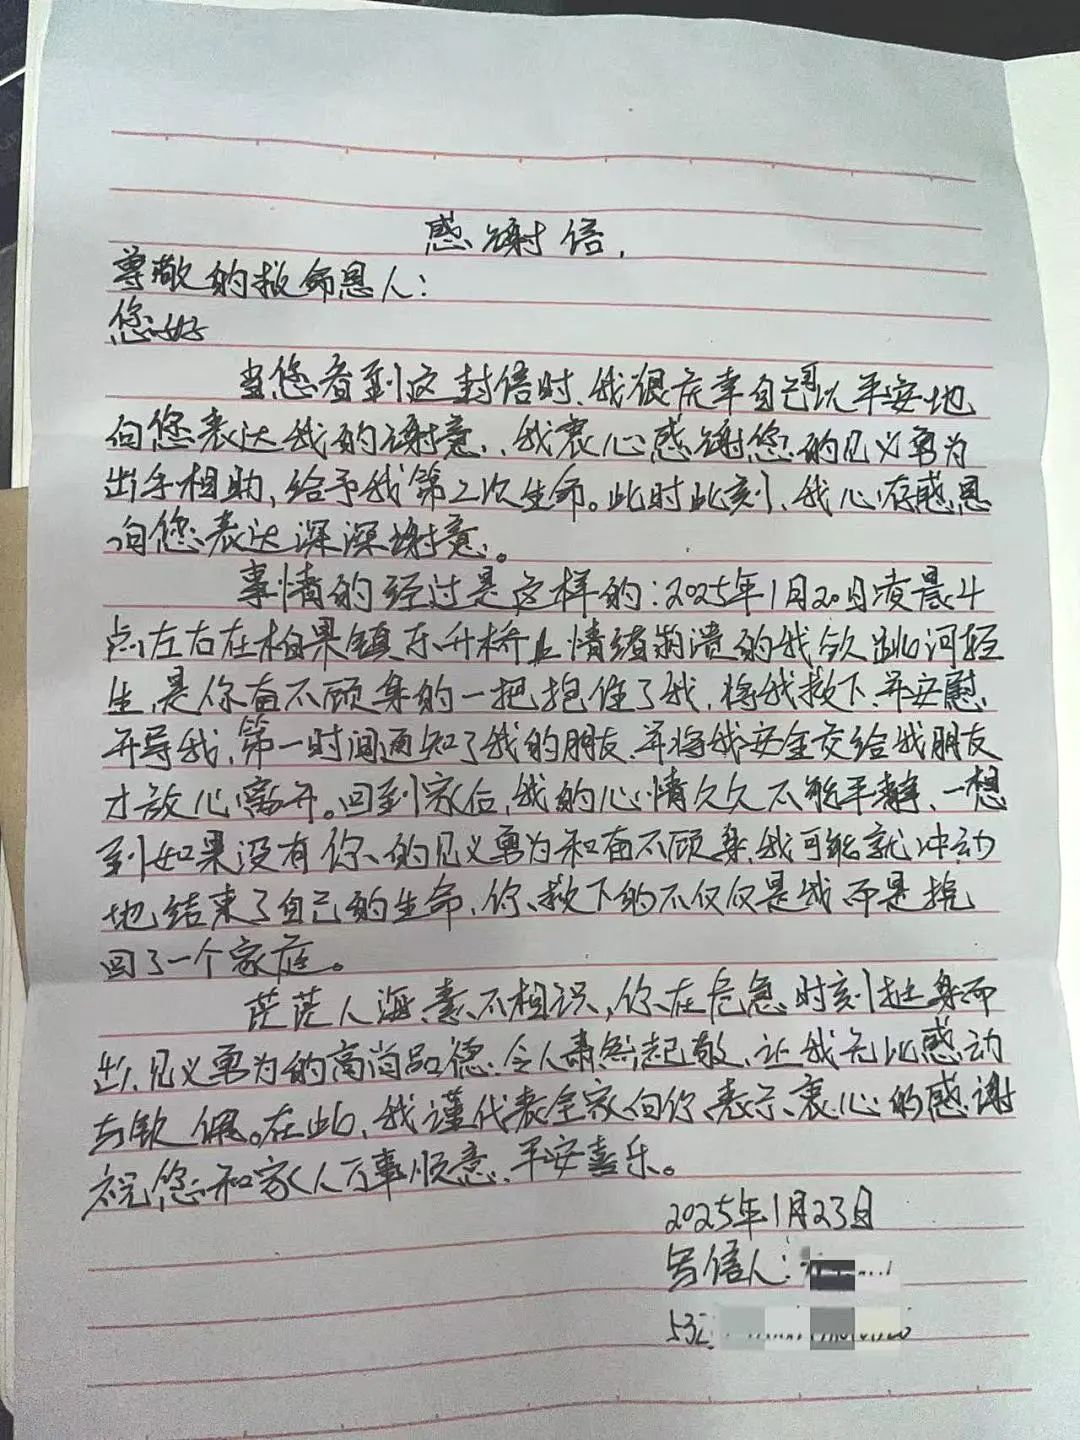 感谢信.
尊敬的救命恩人:
您好
当您看到这封信时、我很庆幸自己可以平安地
向您表达我的谢意,、我衷心感谢您的见义勇为
出手相助,给予我第二次生命。此时此刻、我心存感恩
向您表达深深谢意。
事情的经过是这样的:2025年1月20日凌晨4
点左右在柏果镇东升桥上情绪崩溃的我欲跳河轻
生,是你奋不顾身的一把抱住了我,将我救下、并安慰、
开导我,第一时间通知了我的朋友、并将我安全交给我朋友
才放心离开。回到家后,我的心情久久不能平静、一想
到如果没有你的见义勇为和奋不顾身,我可能就冲动
地结束了自己的生命、你救下的不仅仅是我而是挽
回了一个家庭。
茫茫人海,素不相识,你在危急时刻挺身而
出,见义勇为的高尚品德.令人肃然起敬、让我无比感动
与钦佩。在此、我谨代表全家向你表示衷心的感谢
祝您和家人万事顺意、平安喜乐。
2025年1月23日
写信人: